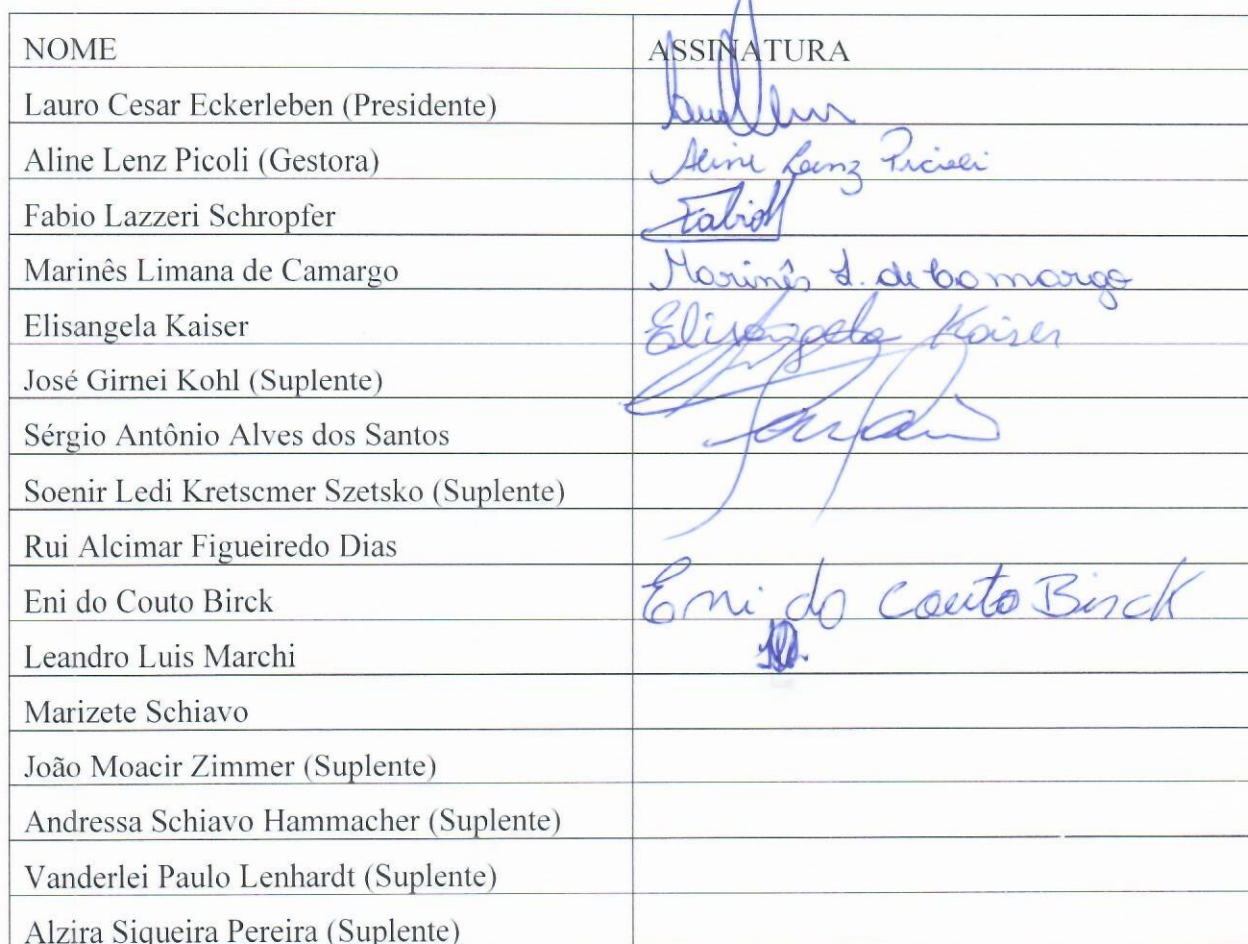 NOME ASSINATURA
Lauro Cesar Eckerleben (Presidente)
Aline Lenz Picoli (Gestora) Aline Lenz Picoli
Fabio Lazzeri Schropfer Fabio
Marinês Limana de Camargo Marinês L. de Camargo
Elisangela Kaiser Elisangela Kaiser
José Girnei Kohl (Suplente)
Sérgio Antônio Alves dos Santos
Soenir Ledi Kretscmer Szetsko (Suplente)
Rui Alcimar Figueiredo Dias
Eni do Couto Birck Eni do Couto Birck
Leandro Luis Marchi
Marizete Schiavo
João Moacir Zimmer (Suplente)
Andressa Schiavo Hammacher (Suplente)
Vanderlei Paulo Lenhardt (Suplente)
Alzira Siqueira Pereira (Suplente)